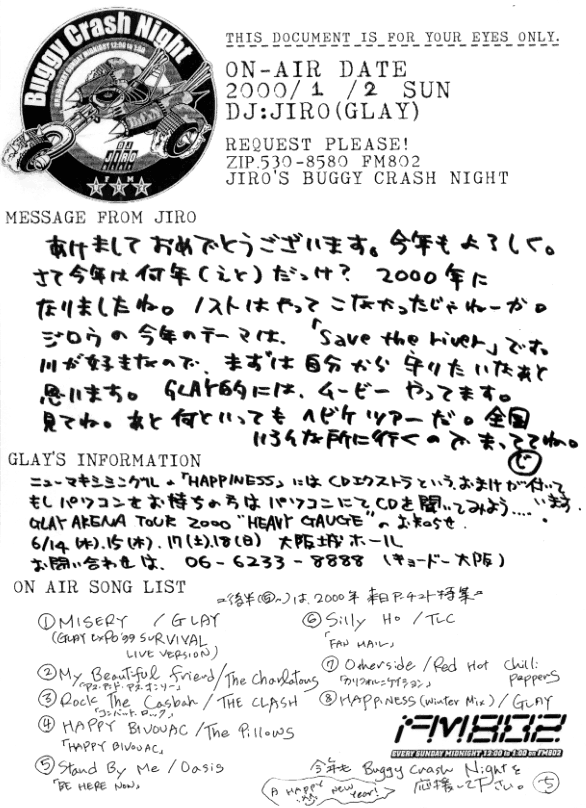 Buggy Crash Night
DJ
JIRO
FM
802
THIS DOCUMENT IS FOR YOUR EYES ONLY.
ON-AIR DATE
2000/1/2 SUN
DJ:JIRO(GLAY)
REQUEST PLEASE!
ZIP.530-8580 FM802
JIRO'S BUGGY CRASH NIGHT
MESSAGE FROM JIRO
あけまして おめでとうございます。今年もよろしく。
さて今年は何年(えと)だっけ? 2000年に
なりましたね。ノストはやってこなかったじゃねーか。
ジロウの今年のテーマは、「Save the river」です。
川が好きなので、まずは自分から守りたいなあと
思います。GLAY的には、ムービーやってます。
見てね。あと何といってもヘビゲツアーだ。全国
いろんな所に行くのでまっててね。
GLAY'S INFORMATION
ニューマキシシングル「HAPPINESS」にはCDエクストラというおまけが付いて
います。
もしパソコンをお持ちの方はパソコンにてCDを開いてみよう....
GLAY ARENA TOUR 2000 "HEAVY GAUGE" のお知らせ.
6/14(水).15(木).17(土).18(日) 大阪城ホール
お問い合わせは、06-6233-8888 (キョードー大阪)
ON AIR SONG LIST
=後半(⑥~)は、2000年 来日アーチスト特集=
①MISERY / GLAY
(GLAY EXPO'99 SURVIVAL
LIVE VERSION)
②My Beautiful Friend/The Charlatans
③Rock The Casbah/THE CLASH
「コンバット・ロック」
④HAPPY BIVOUAC/The Pillows
「HAPPY BIVOUAC」
⑤Stand By Me/Oasis
「BE HERE NOW」
⑥Silly Ho/TLC
「FAN MAIL」
⑦Otherside/Red Hot Chili
Peppers
「カリフォルニケイション」
⑧HAPPINESS(Winter Mix)/GLAY
FM802
EVERY SUNDAY MIDNIGHT 12:00 to 1:00 on FM802
今年も Buggy Crash Nightを
応援して下さい。
A HAPPY NEW
YEAR!